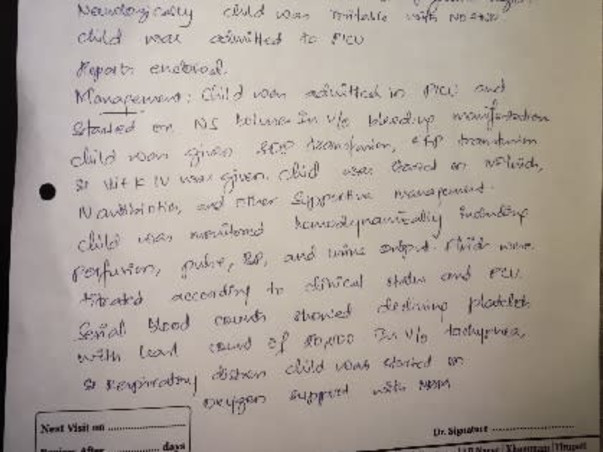 Neurologically child was irritable with no
child was admitted to PICU
Reports enclosed.
Management: Child was admitted in PICU and
Started on NS bolus In v/o bleeding manifestation
child was given SDP transfusion, FFP transfusion
& Vit K IV was given. Child was on
IV antibiotics, and other supportive management.
Child was monitored hemodynamically including
perfusion, pulse, BP, and urine output. Fluids were
titrated according to clinical status and PCV.
Serial blood counts showed declining platelets
with least count of In v/o tachypnea,
& Respiratory distress child was started on
oxygen support with NRM
Next Visit on ....................
Review After .................... days
Dr. Signature ....................